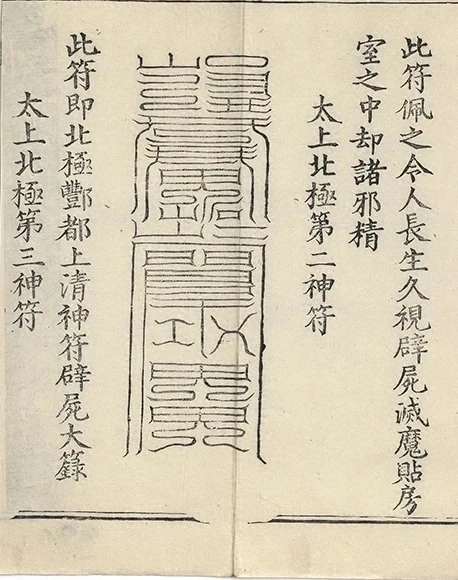 此符佩之令人長生久視辟屍滅魔貼房
室之中却諸邪精
太上北極第二神符
此符即北極酆都上清神符辟屍大籙
太上北極第三神符